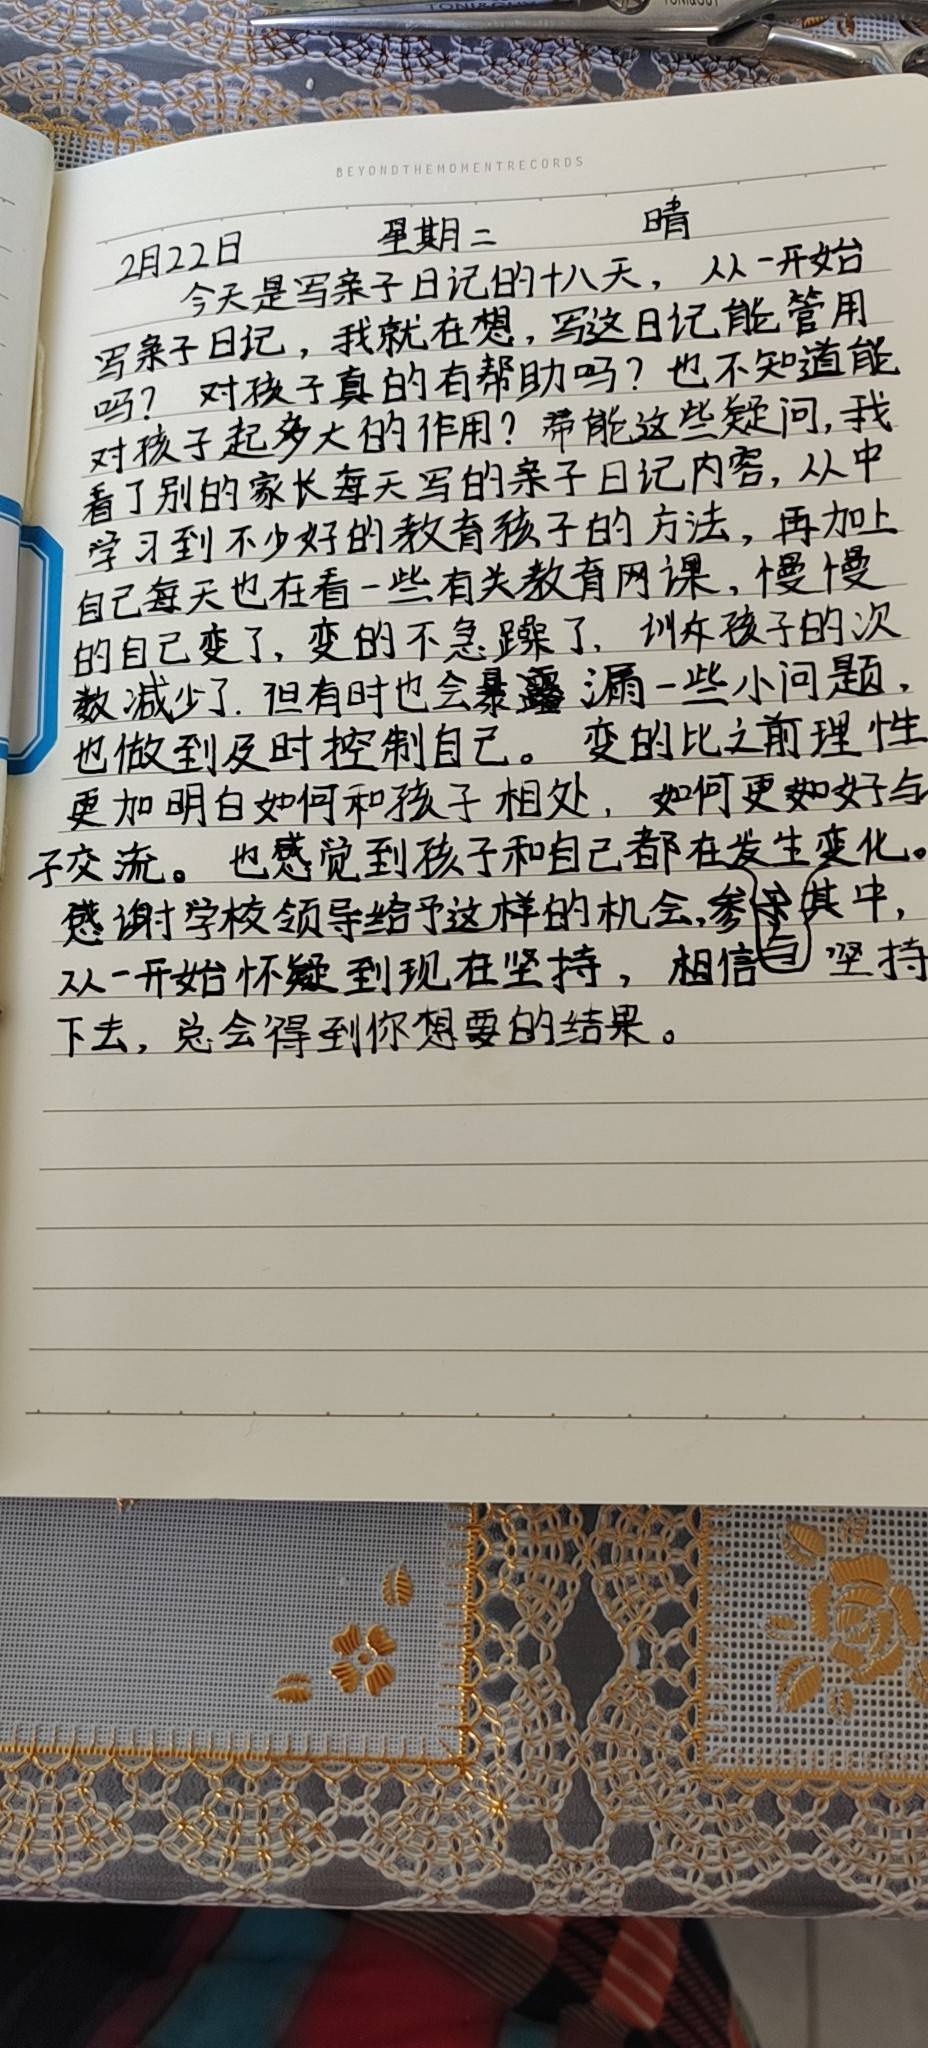 TONI&GUY
BEYONDTHEMOMENTRECORDS
2月22日 星期二 晴
今天是写亲子日记的十八天，从一开始
写亲子日记，我就在想，写这日记能管用
吗？对孩子真的有帮助吗？也不知道能
对孩子起多大的作用？带能这些疑问，我
看了别的家长每天写的亲子日记内容，从中
学习到不少好的教育孩子的方法，再加上
自己每天也在看一些有关教育网课，慢慢
的自己变了，变的不急躁了，训斥孩子的次
数减少了.但有时也会暴露漏一些小问题，
也做到及时控制自己。变的比之前理性
更加明白如何和孩子相处，如何更如好与
子交流。也感觉到孩子和自己都在发生变化。
感谢学校领导给予这样的机会,参与其中，
从一开始怀疑到现在坚持，相信 坚持
下去，总会得到你想要的结果。